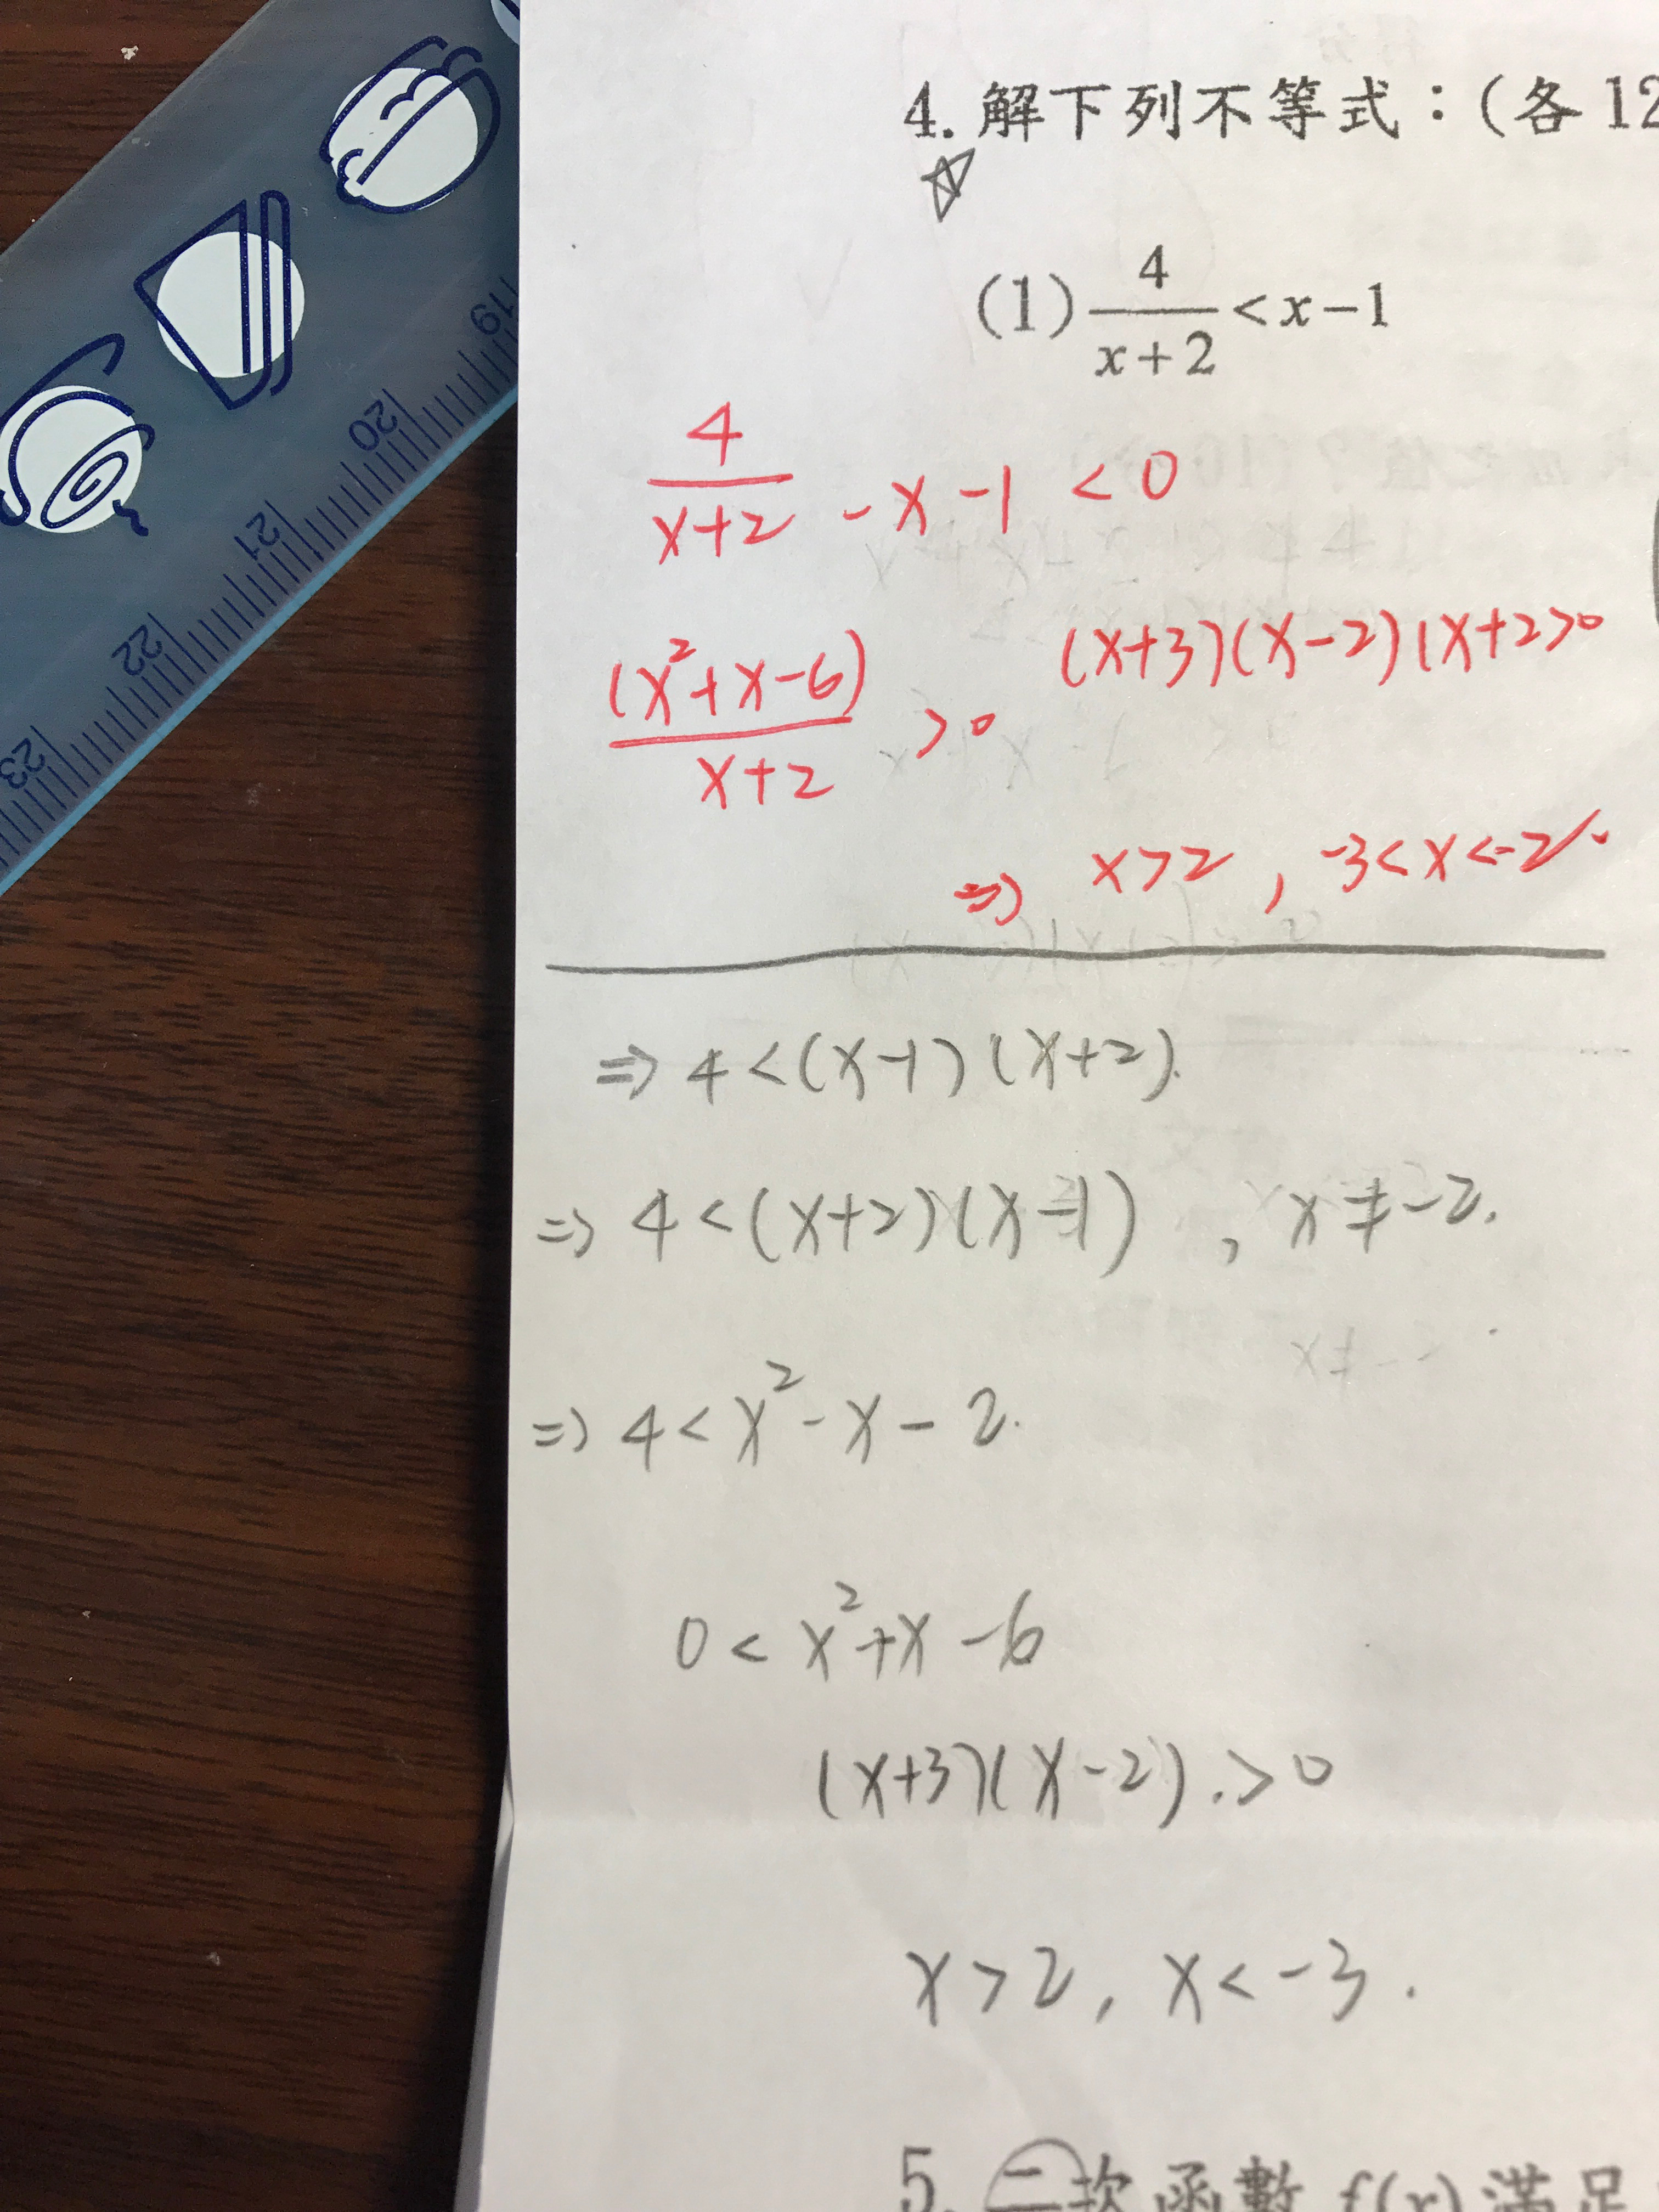 4. 解下列不等式：(各 12
(1) \frac{4}{x+2} < x-1
\frac{4}{x+2} - x - 1 < 0
\frac{(x^2+x-6)}{x+2} > 0
(x+3)(x-2)(x+2>0
⇒ x>2 , -3<x<-2
⇒ 4<(x-1)(x+2).
⇒ 4<(x+2)(x-1) , x≠-2.
⇒ 4<x^2-x-2.
0<x^2+x-6
(x+3)(x-2).>0
x>2, x<-3.
5. 二次函數 f(x) 滿足
19
20
21
22
23